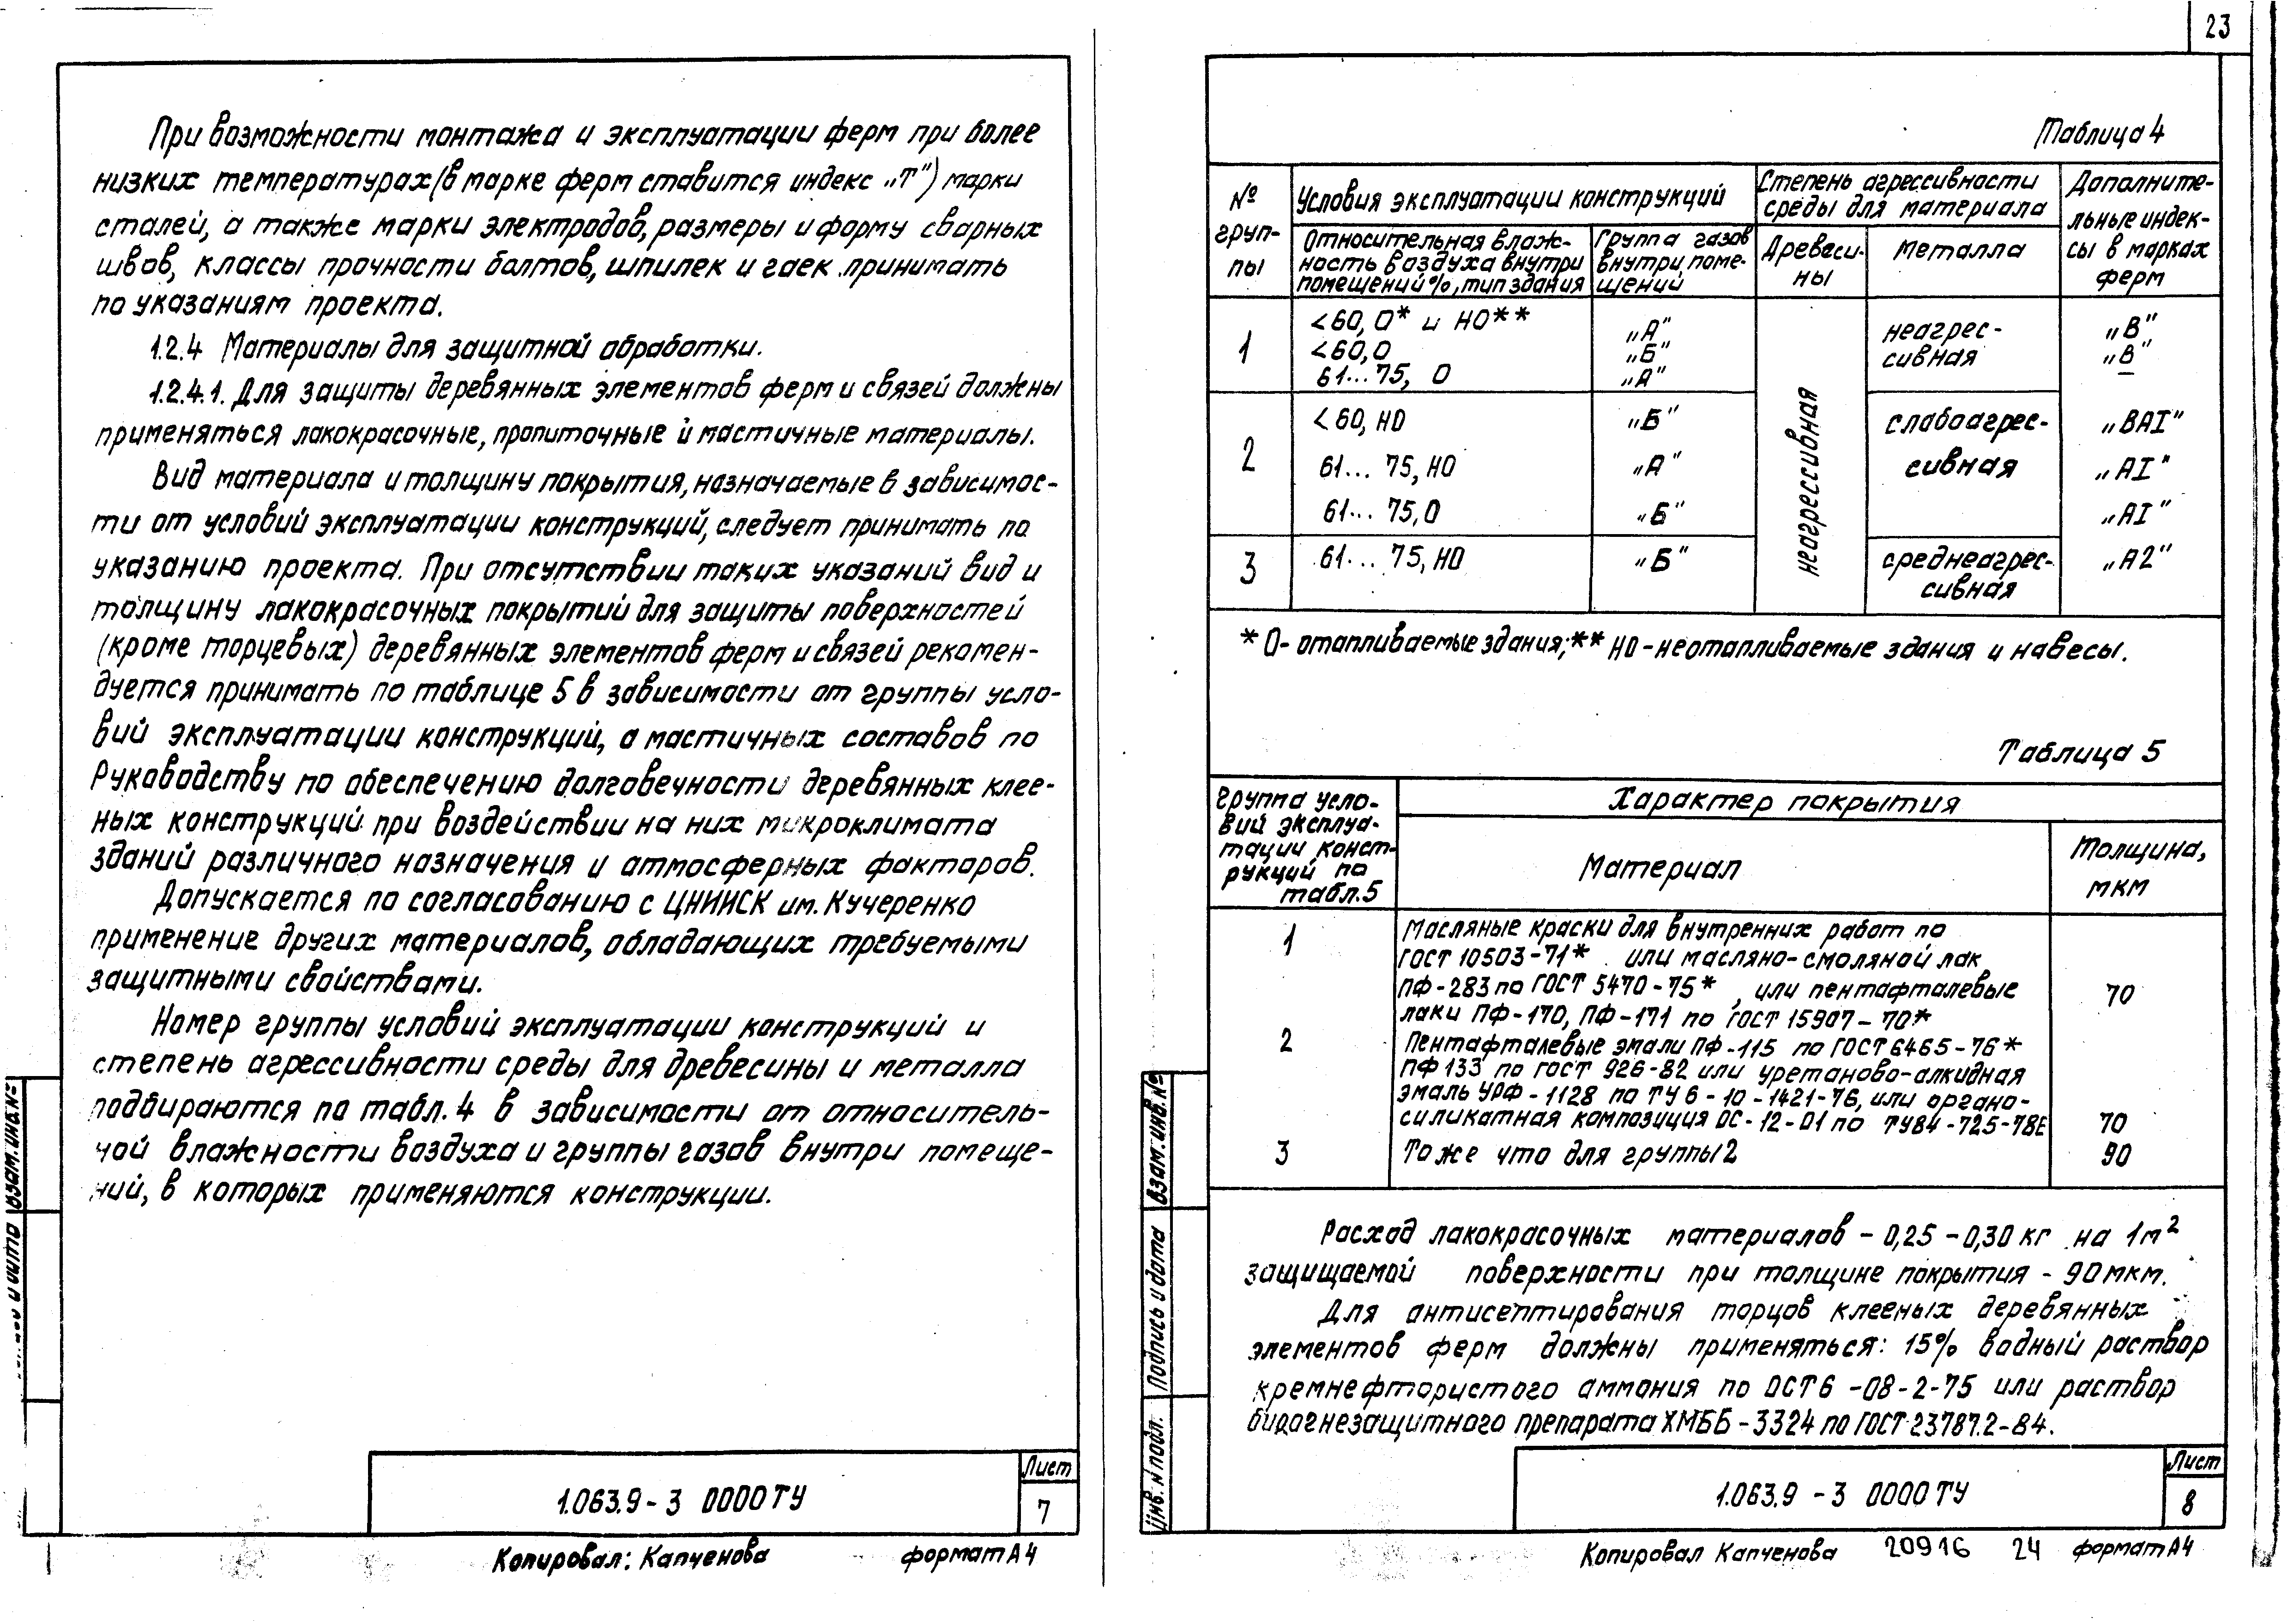 При возможности монтажа и эксплуатации ферм при более
низких температурах (в марке ферм ставится индекс „Т") марки
сталей, а также марки электродов, размеры и форму сварных
швов, классы прочности болтов, шпилек и гаек принимать
по указаниям проекта.
1.2.4 Материалы для защитной обработки.
1.2.4.1. Для защиты деревянных элементов ферм и связей должны
применяться лакокрасочные, пропиточные и мастичные материалы.
Вид материала и толщину покрытия, назначаемые в зависимос-
ти от условий эксплуатации конструкций, следует принимать по
указанию проекта. При отсутствии таких указаний вид и
толщину лакокрасочных покрытий для защиты поверхностей
(кроме торцевых) деревянных элементов ферм и связей рекомен-
дуется принимать по таблице 5 в зависимости от группы усло-
вий эксплуатации конструкций, а мастичных составов по
Руководству по обеспечению долговечности деревянных клее-
ных конструкций при воздействии на них микроклимата
зданий различного назначения и атмосферных факторов.
Допускается по согласованию с ЦНИИСК им. Кучеренко
применение других материалов, обладающих требуемыми
защитными свойствами.
Номер группы условий эксплуатации конструкций и
степень агрессивности среды для древесины и металла
подбираются по табл. 4 в зависимости от относитель-
ной влажности воздуха и группы газов внутри помеще-
ний, в которых применяются конструкции.
1.063.9-3 0000ТУ
Лист
7
Копировал: Капченова
формат А4
23
Таблица 4
№ груп-пы
Условия эксплуатации конструкций
Степень агрессивности
среды для материала
Дополните-
льные индек-
сы в марках
ферм
Относительная влаж-
ность воздуха внутри
помещений %, тип здания
Группа газов
внутри поме-
щений
Древеси-
ны
Металла
1
<60, О* и НО** „А" „В"
<60, О „Б" „В"
61... 75, О „А" –
неагрес-
сивная
неагрессивная
2
<60, НО „Б" слабоагрес- „ВАI"
61... 75, НО „А" сивная „АI"
61... 75, О „Б" „АI"
3
61... 75, НО „Б" среднеагрес- „А2"
сивная
* О- отапливаемые здания; ** НО - неотапливаемые здания и навесы.
Таблица 5
Группа усло-
вий эксплуа-
тации конст-
рукций по
табл. 5
Характер покрытия
Материал
Толщина,
мкм
1
Масляные краски для внутренних работ по
ГОСТ 10503-71* или масляно-смоляной лак
ПФ-283 по ГОСТ 5470-75*, или пентафталевые 70
лаки ПФ-170, ПФ-171 по ГОСТ 15907-70*
2 Пентафталевые эмали ПФ-115 по ГОСТ 6465-76*
ПФ 133 по ГОСТ 926-82 или уретаново-алкидная
эмаль УРФ-1128 по ТУ 6-10-1421-76, или органо-
силикатная композиция ОС-12-01 по ТУ84-725-78Е 70
3 То же что для группы 2 90
Расход лакокрасочных материалов - 0,25 - 0,30 кг на 1м²
защищаемой поверхности при толщине покрытия - 90 мкм.
Для антисептирования торцов клееных деревянных
элементов ферм должны применяться: 15% водный раствор
кремнефтористого аммония по ОСТ 6-08-2-75 или раствор
биоогнезащитного препарата ХМББ-3324 по ГОСТ 23787.2-84.
Взам. инв. №
Подпись и дата
Инв. № подл.
1.063.9-3 0000ТУ
Лист
8
Копировал Капченова
20916 24
формат А4